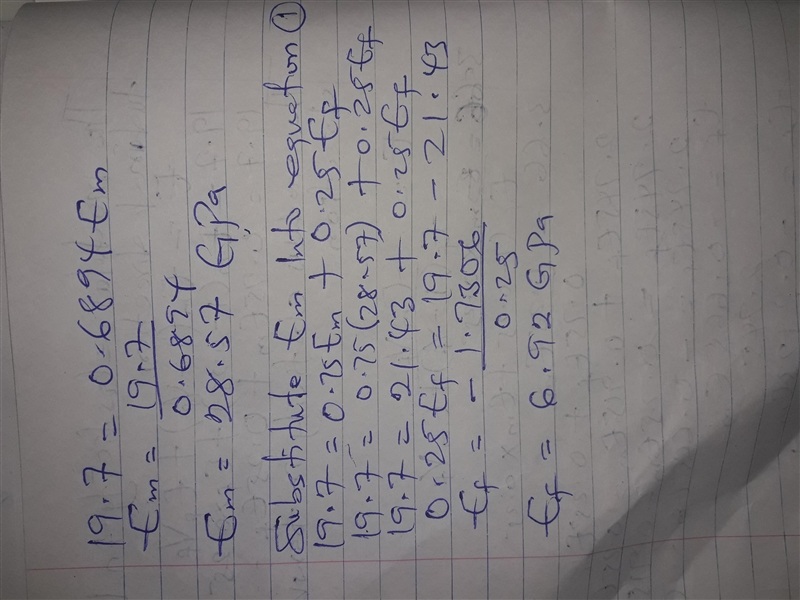 19.7 = 0.6894 Em
Em = 19.7
0.6894
Em = 28.57 GPa
Substitute Em Into equation ①
19.7 = 0.75Em + 0.25Ef
19.7 = 0.75(28.57) + 0.25Ef
19.7 = 21.43 + 0.25Ef
0.25Ef = 19.7 - 21.43
Ef = - 1.7306
0.25
Ef = 6.92 GPa